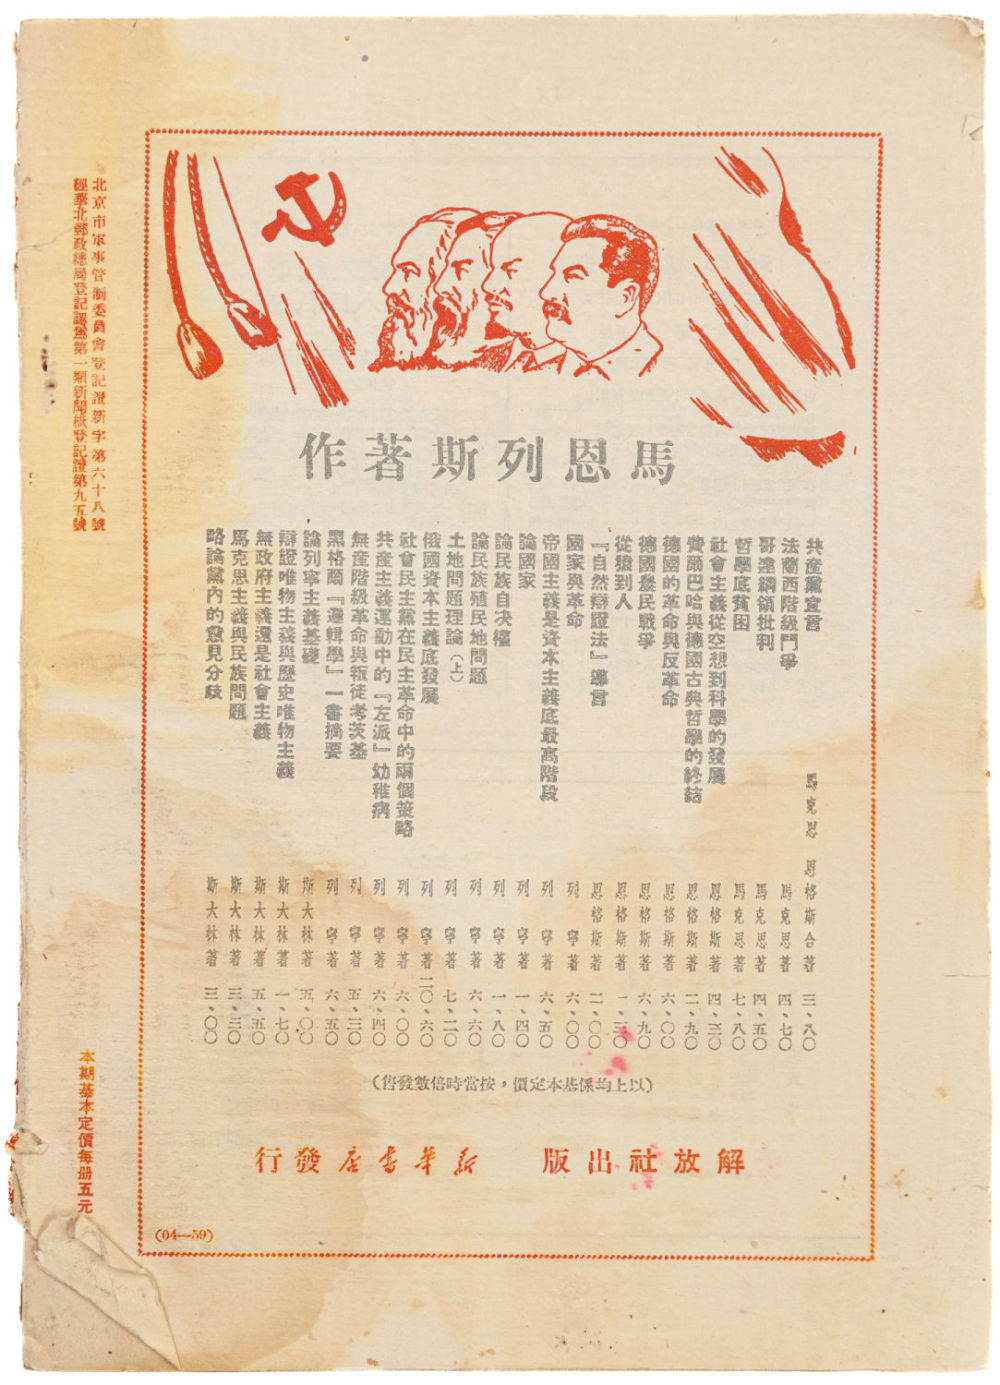 馬恩列斯著作
共產黨宣言 馬克思 恩格斯合著 三、八〇
法蘭西階級鬥爭 馬克思著 四、七〇
哥達綱領批判 馬克思著 四、五〇
哲學底貧困 馬克思著 七、八〇
社會主義從空想到科學的發展 恩格斯著 四、三〇
費爾巴哈與德國古典哲學的終結 恩格斯著 二、九〇
德國的革命與反革命 恩格斯著 六、〇〇
德國農民戰爭 恩格斯著 六、九〇
從猿到人 恩格斯著 一、三〇
『自然辯證法』導言 恩格斯著 二、〇〇
國家與革命 列寧著 六、〇〇
帝國主義是資本主義底最高階段 列寧著 六、五〇
論國家 列寧著 一、四〇
論民族自決權 列寧著 一、八〇
論民族殖民地問題 列寧著 六、六〇
土地問題理論（上） 列寧著 七、二〇
俄國資本主義底發展 列寧著 二〇、六〇
社會民主黨在民主革命中的兩個策略 列寧著 六、〇〇
共產主義運動中的『左派』幼稚病 列寧著 六、四〇
無產階級革命與叛徒考茨基 列寧著 五、三〇
黑格爾『邏輯學』一書摘要 列寧著 六、五〇
論列寧主義基礎 斯大林著 五、〇〇
辯證唯物主義與歷史唯物主義 斯大林著 一、七〇
無政府主義還是社會主義 斯大林著 五、五〇
馬克思主義與民族問題 斯大林著 三、三〇
略論黨內的意見分歧 斯大林著 三、〇〇
（以上均係基本定價，按當時倍數發售）
解放社出版 新華書店發行
(04—59)
北京市軍事管制委員會登記證新字第六十八號
經華北郵政總局登記認為第一類新聞紙登記證第九五號
本期基本定價每冊五元